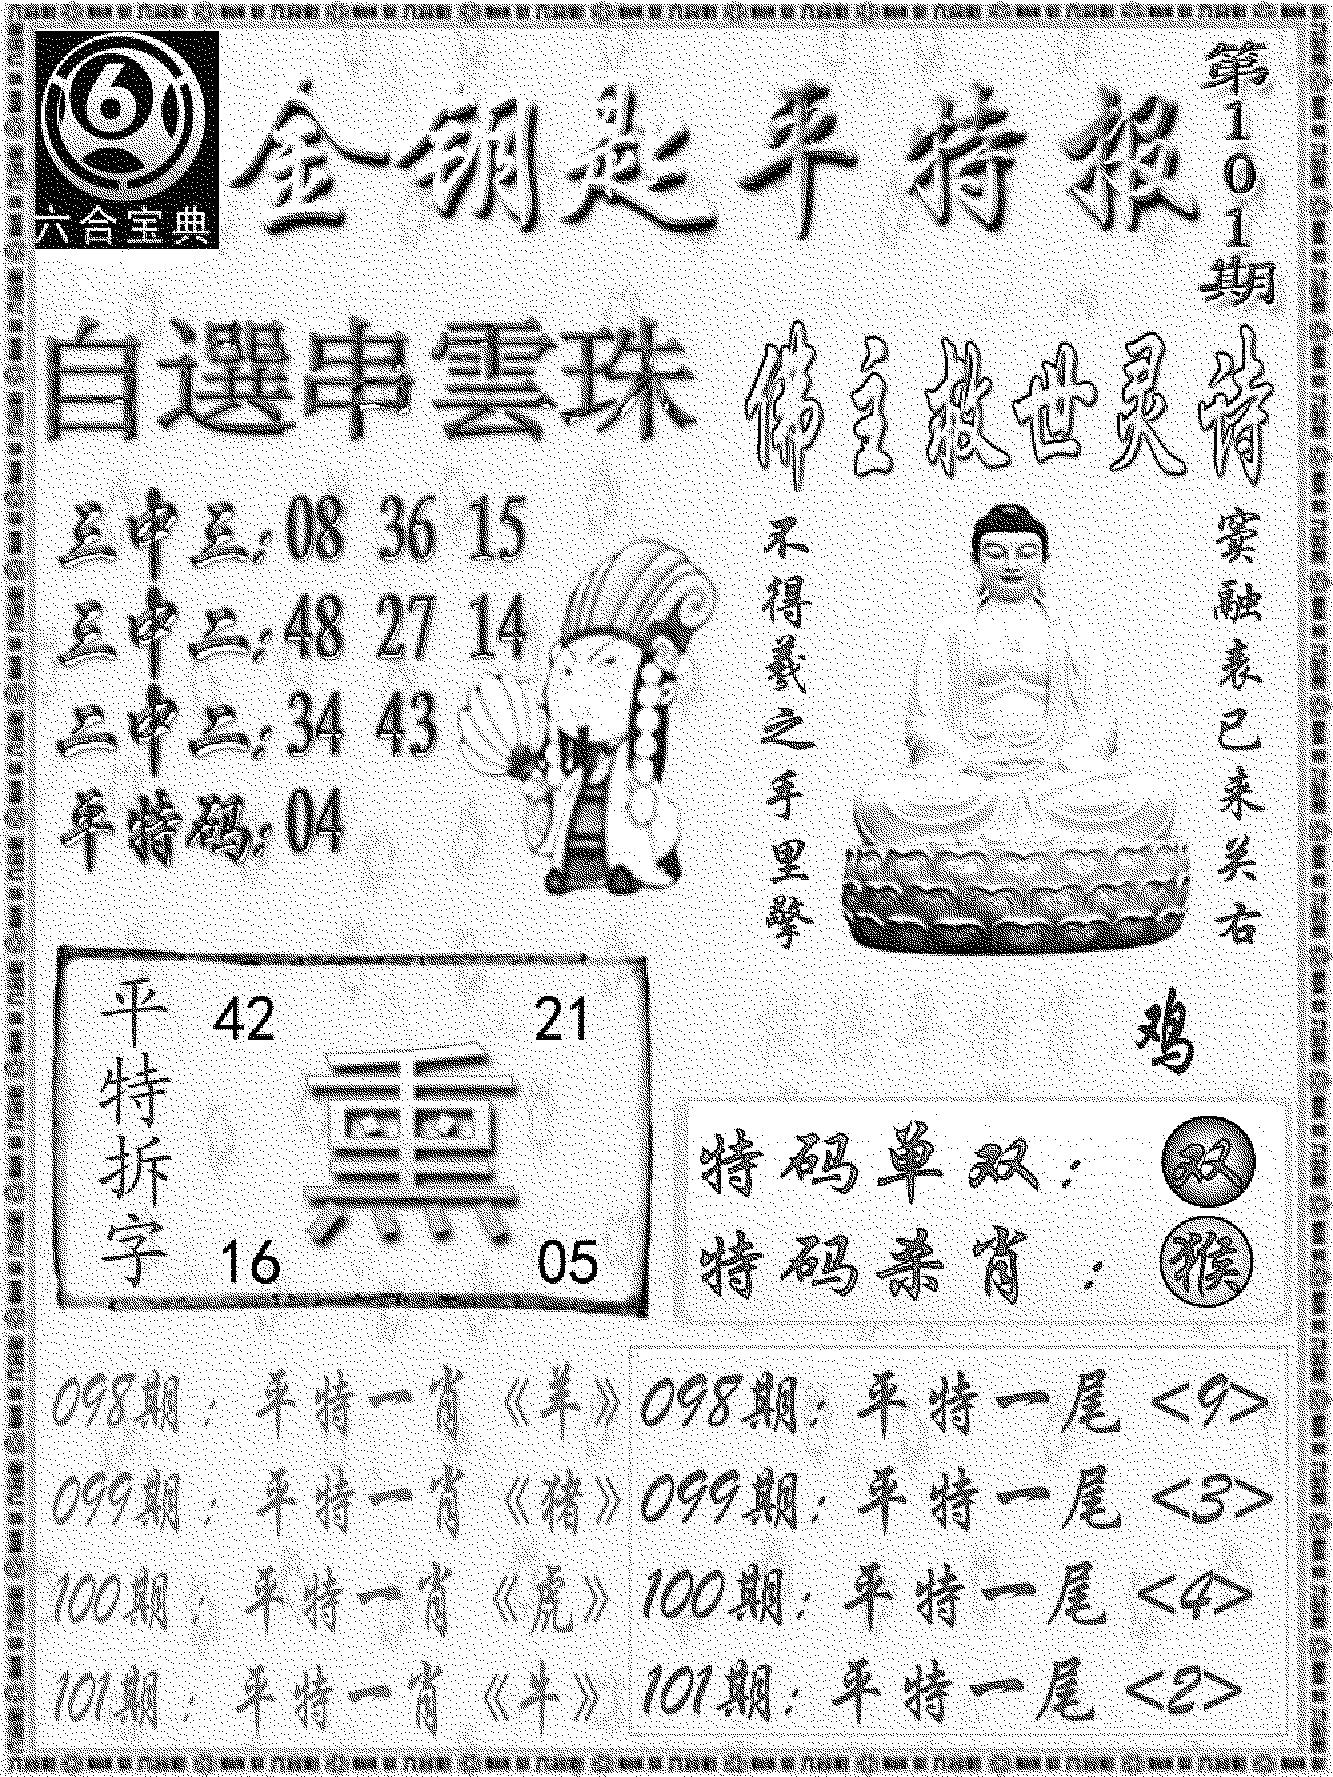 六合宝典
金钥匙平特报
第101期
自選串雲珠
三中三:08 36 15
三中二:48 27 14
二中二:34 43
单特码:04
佛主救世灵诗
窦融表已来关右
不得羲之手里擎
鸡
平特拆字
42 21
熏
16 05
特码单双:双
特码杀肖:猴
098期:平特一肖《羊》
099期:平特一肖《猪》
100期:平特一肖《虎》
101期:平特一肖《牛》
098期:平特一尾<9>
099期:平特一尾<3>
100期:平特一尾<4>
101期:平特一尾<2>